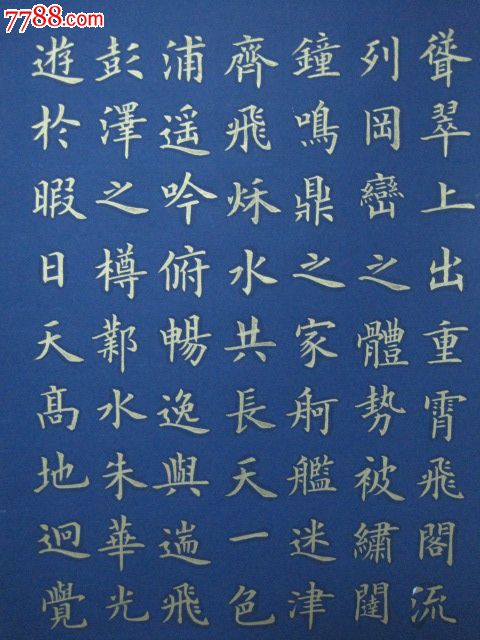 7788.com
聳翠上出重霄飛閣流
列岡巒之體勢被繡闥
鐘鳴鼎之家舸艦迷津
齊飛秌水共長天一色
浦遥吟俯暢逸與遄飛
彭澤之樽鄴水朱華光
遊於暇日天髙地迥覺